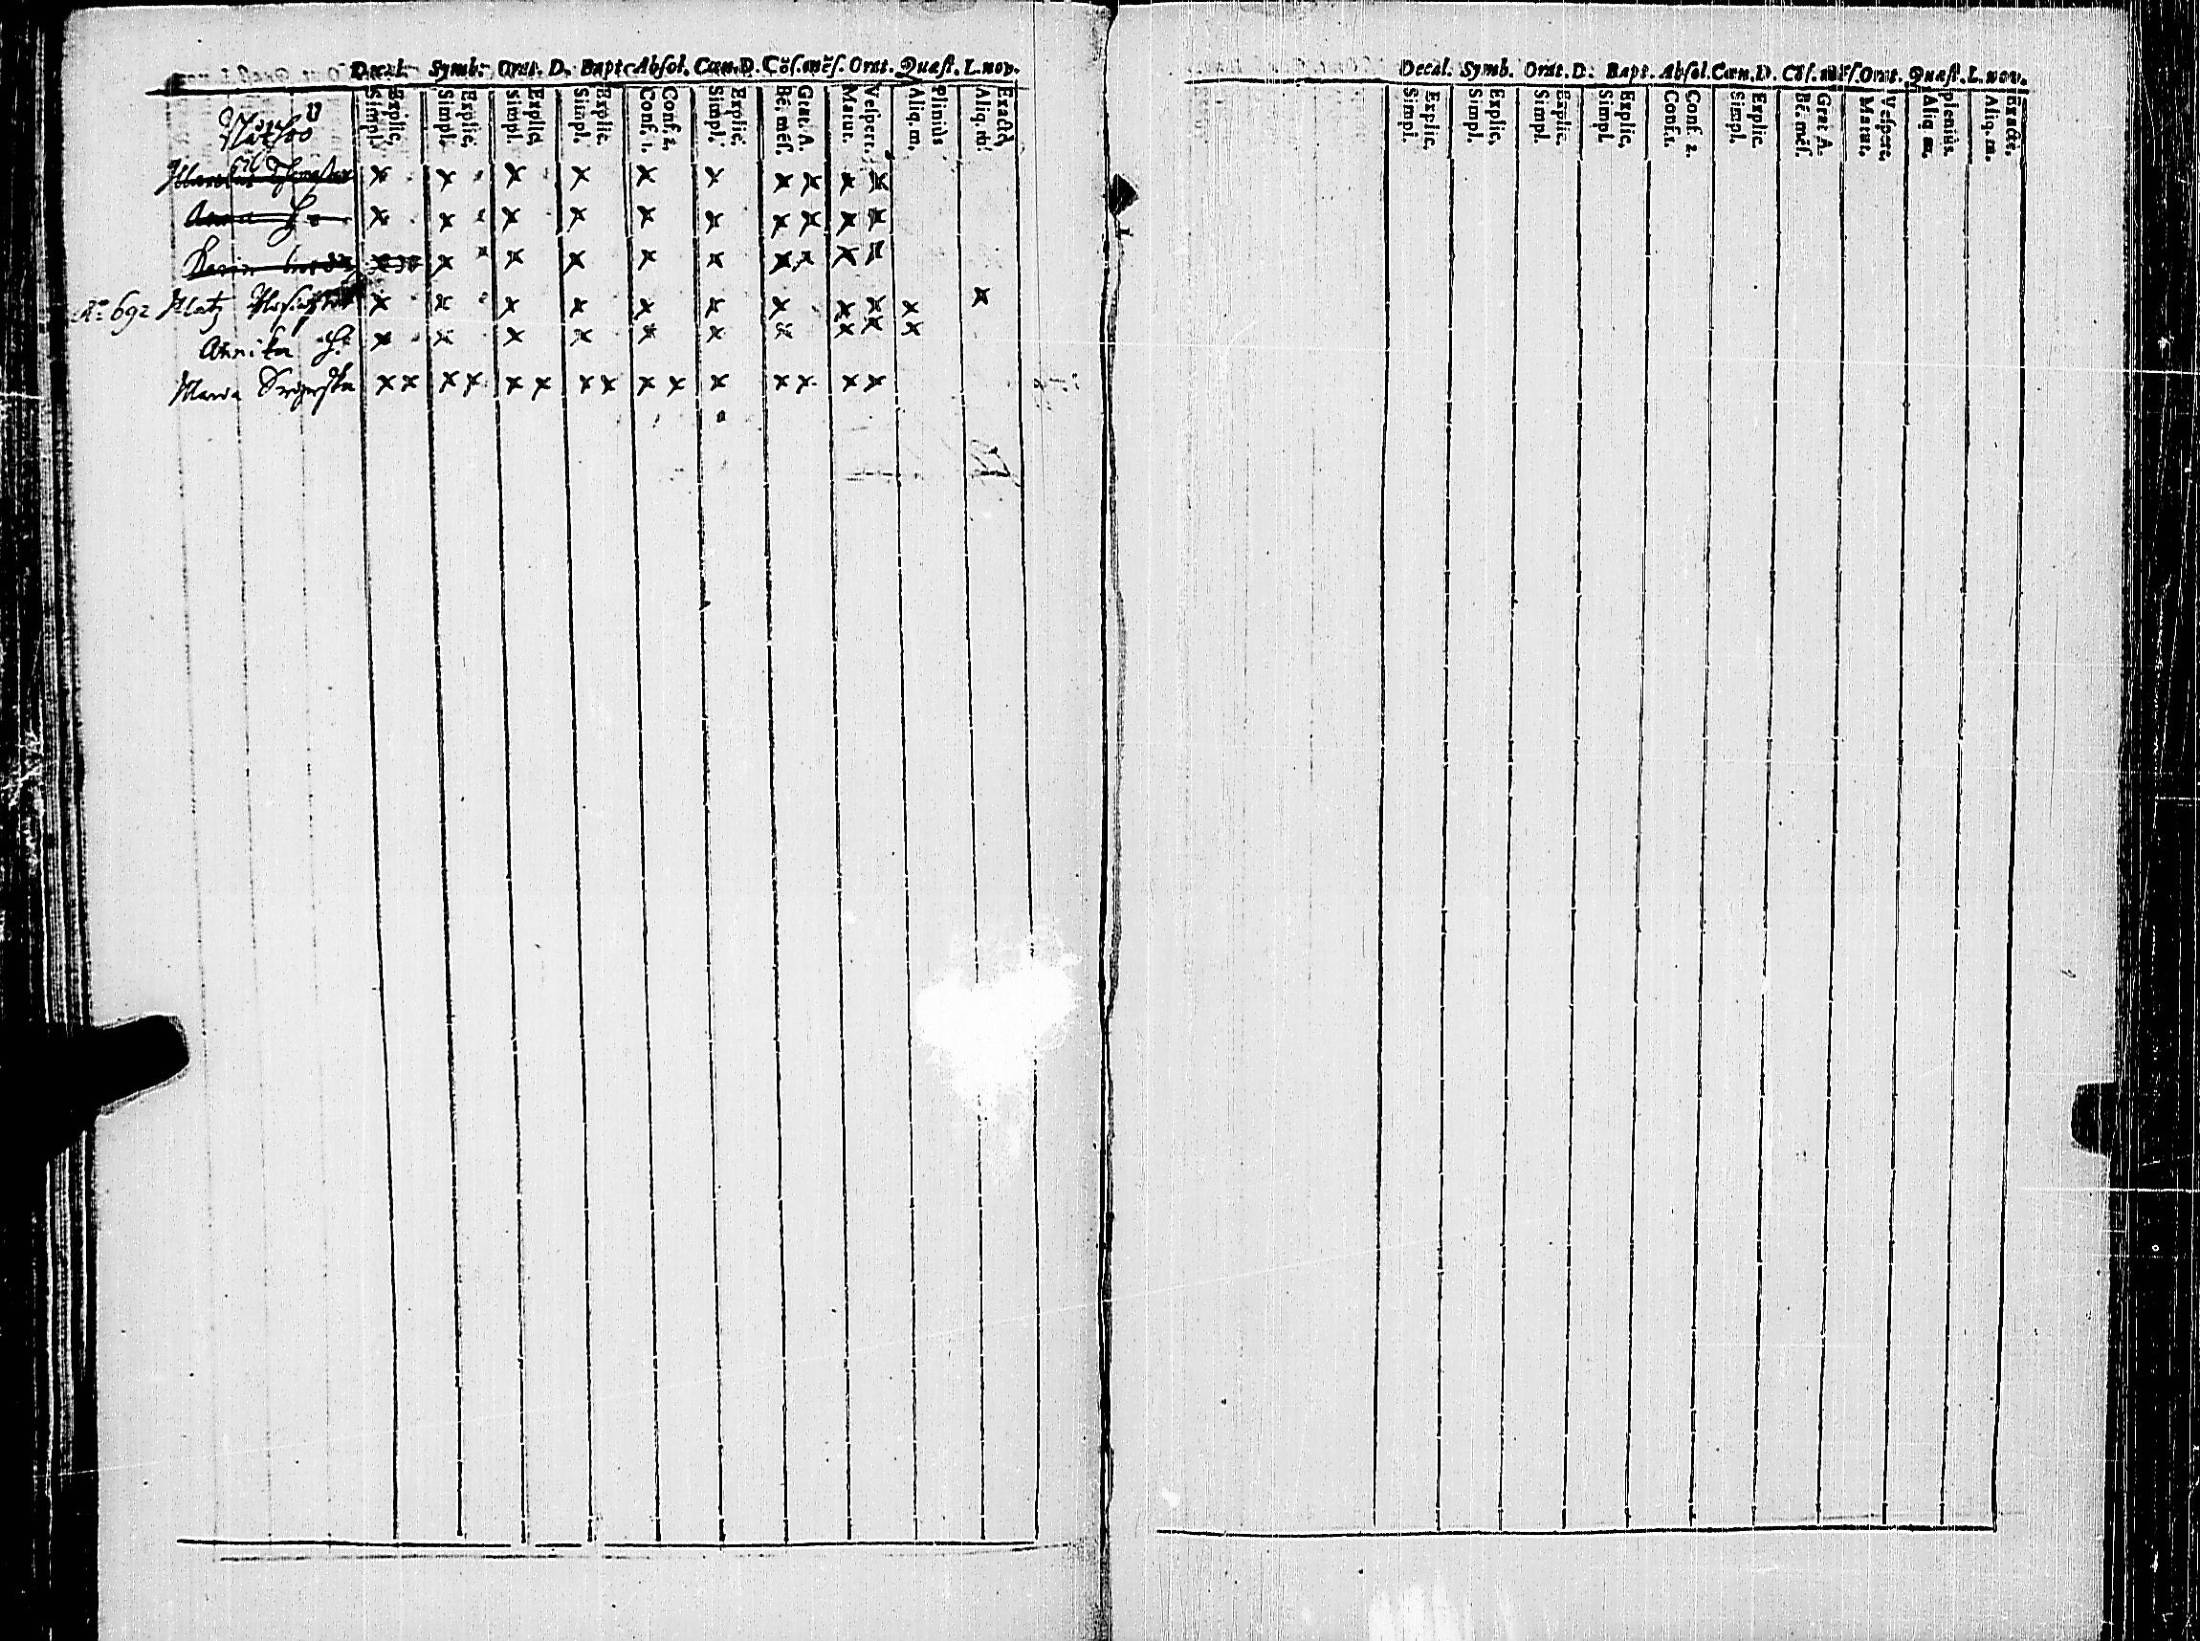 Decal. Symb. Orat. D. Bapt. Absol. Cœn. D. Cōſ. mēſ. Orat. Quæſt. L. nov.
Simpl. Explic. Simpl. Explic. Simpl. Explic. Simpl. Explic. Conf. 1. Conf. 2. Simpl. Explic. Bē. mēſ. Grat. A. Matut. Veſpert. Aliq. m. Pleniùs Aliq. m. Exactè
x x x x x x x x x x
Anna H x x x x x x x x x x
Karin x x x x x x x x x x
Ao 692 Matz x x x x x x x x x x x
Annika H: x x x x x x x x x x
Maria x x x x x x x x x x x x x x x
Decal. Symb. Orat. D. Bapt. Absol. Cœn. D. Cōſ. mēſ. Orat. Quæſt. L. nov.
Simpl. Explic. Simpl. Explic. Simpl. Explic. Simpl. Explic. Conf. 1. Conf. 2. Simpl. Explic. Bē. mēſ. Grat A. Matut. Veſpere. Aliq. m. pleniùs. Aliq. m. Exactè.